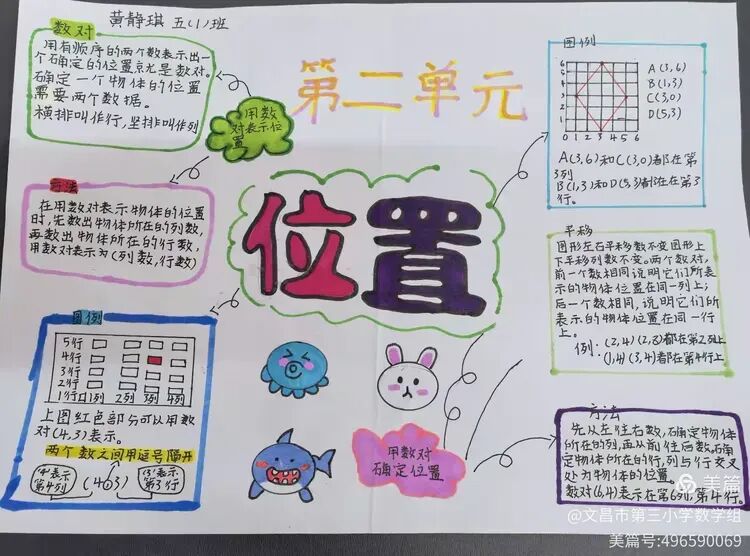 黄静琪 五(1)班
第二单元
位置
数对
用有顺序的两个数表示出一
个确定的位置就是数对。
确定一个物体的位置
需要两个数据。
横排叫作行，竖排叫作列
用数
对表示位
置
方法
在用数对表示物体的位置
时，先数出物体所在的列数，
再数出物体所在的行数，
用数对表示为(列数，行数)
图例
5行
4行
3行
2行
1行
1列 2列 3列 4列
上图红色部分可以用数
对(4,3)表示。
两个数之间用逗号隔开
"4"表示
第4列
(4,3)
"3"表示
第3行
用数对
确定位置
图例
6
5
4
3
2
1
0
0 1 2 3 4 5 6
A(3,6)
B(1,3)
C(3,0)
D(5,3)
A(3,6)和C(3,0)都在第
3列
B(1,3)和D(5,3)都在在第3
行。
平移
图形左右平移数不变图形上
下平移列数不变。两个数对，
前一个数相同说明它们所表
示的物体位置在同一列上；
后一个数相同，说明它们所
表示的物体位置在同一行
上。
例：(2,4)(2,2)都在第2列上
(1,4)(3,4)都在第4行上
方法
先从左往右数，确定物体
所在的列，再从前往后数，确
定物体所在的行，列与行交叉
处为物体的位置。
数对(6,4)表示在第6列，第4行。
美篇
@文昌市第三小学数学组
美篇号:496590069